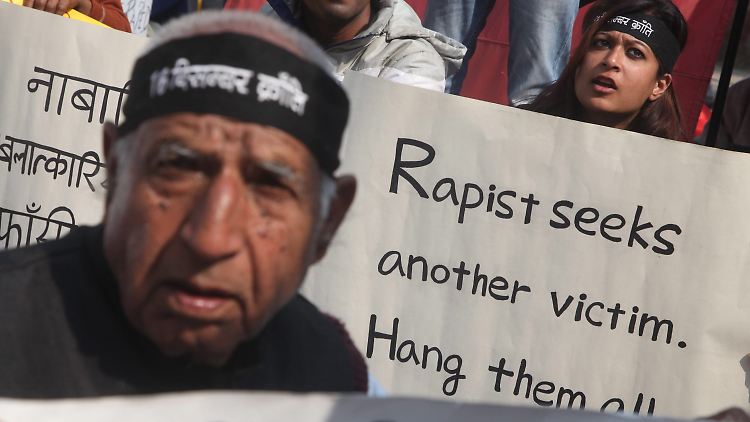 16 दिसम्बर क्राँति
दिसम्बर क्राँति
नाबा
बलात्कारि
फाँसी
Rapist seeks
another victim.
Hang them all